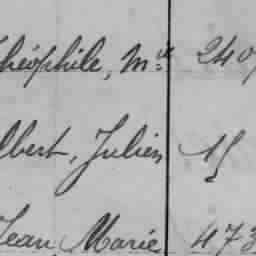 Théophile, Md 240
Albert, Julien 15
Jean Marie 473